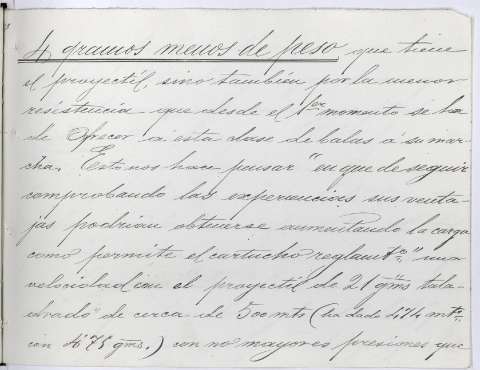 4 gramos menos de peso que tiene
el proyectil, sino tambien por la menor
resistencia que desde el 1er momento se ha
de ofrecer a esta clase de balas á su mar-
cha. Esto nos hace pensar "en que de seguir
comprobando las experiencias sus venta-
jas podrian obtenerse aumentando la carga
como permite el cartucho reglamto." una
velocidad con el proyectil de 21 gms tala-
drado de cerca de 500 mts (ha dado 474 mts.
con 4'75 gms.) con no mayores presiones que